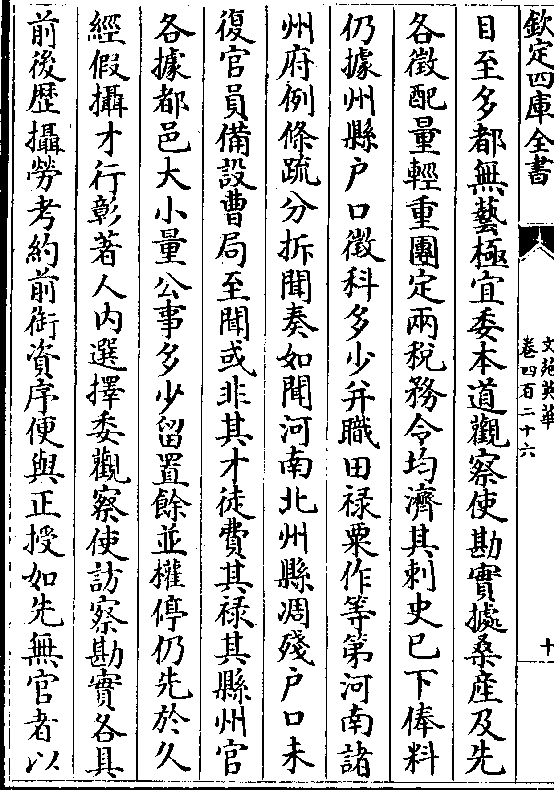 欽定四庫全書
文苑英華
卷四百二十六
十
目至多都無藝極宜委本道觀察使勘實據桑産及先
各徵配量輕重團定兩税務令均濟其刺史巳下俸料
仍據州縣户口徵科多少并職田禄粟作等第河南諸
州府例條疏分拆聞奏如聞河南北州縣凋殘户口未
復官員備設曹局至閒或非其才徒費其禄其縣州官
各據都邑大小量公事多少留置餘並權停仍先於久
經假攝才行彰著人内選擇委觀察使訪察勘實各具
前後歴攝勞考約前銜資序便與正授如先無官者以